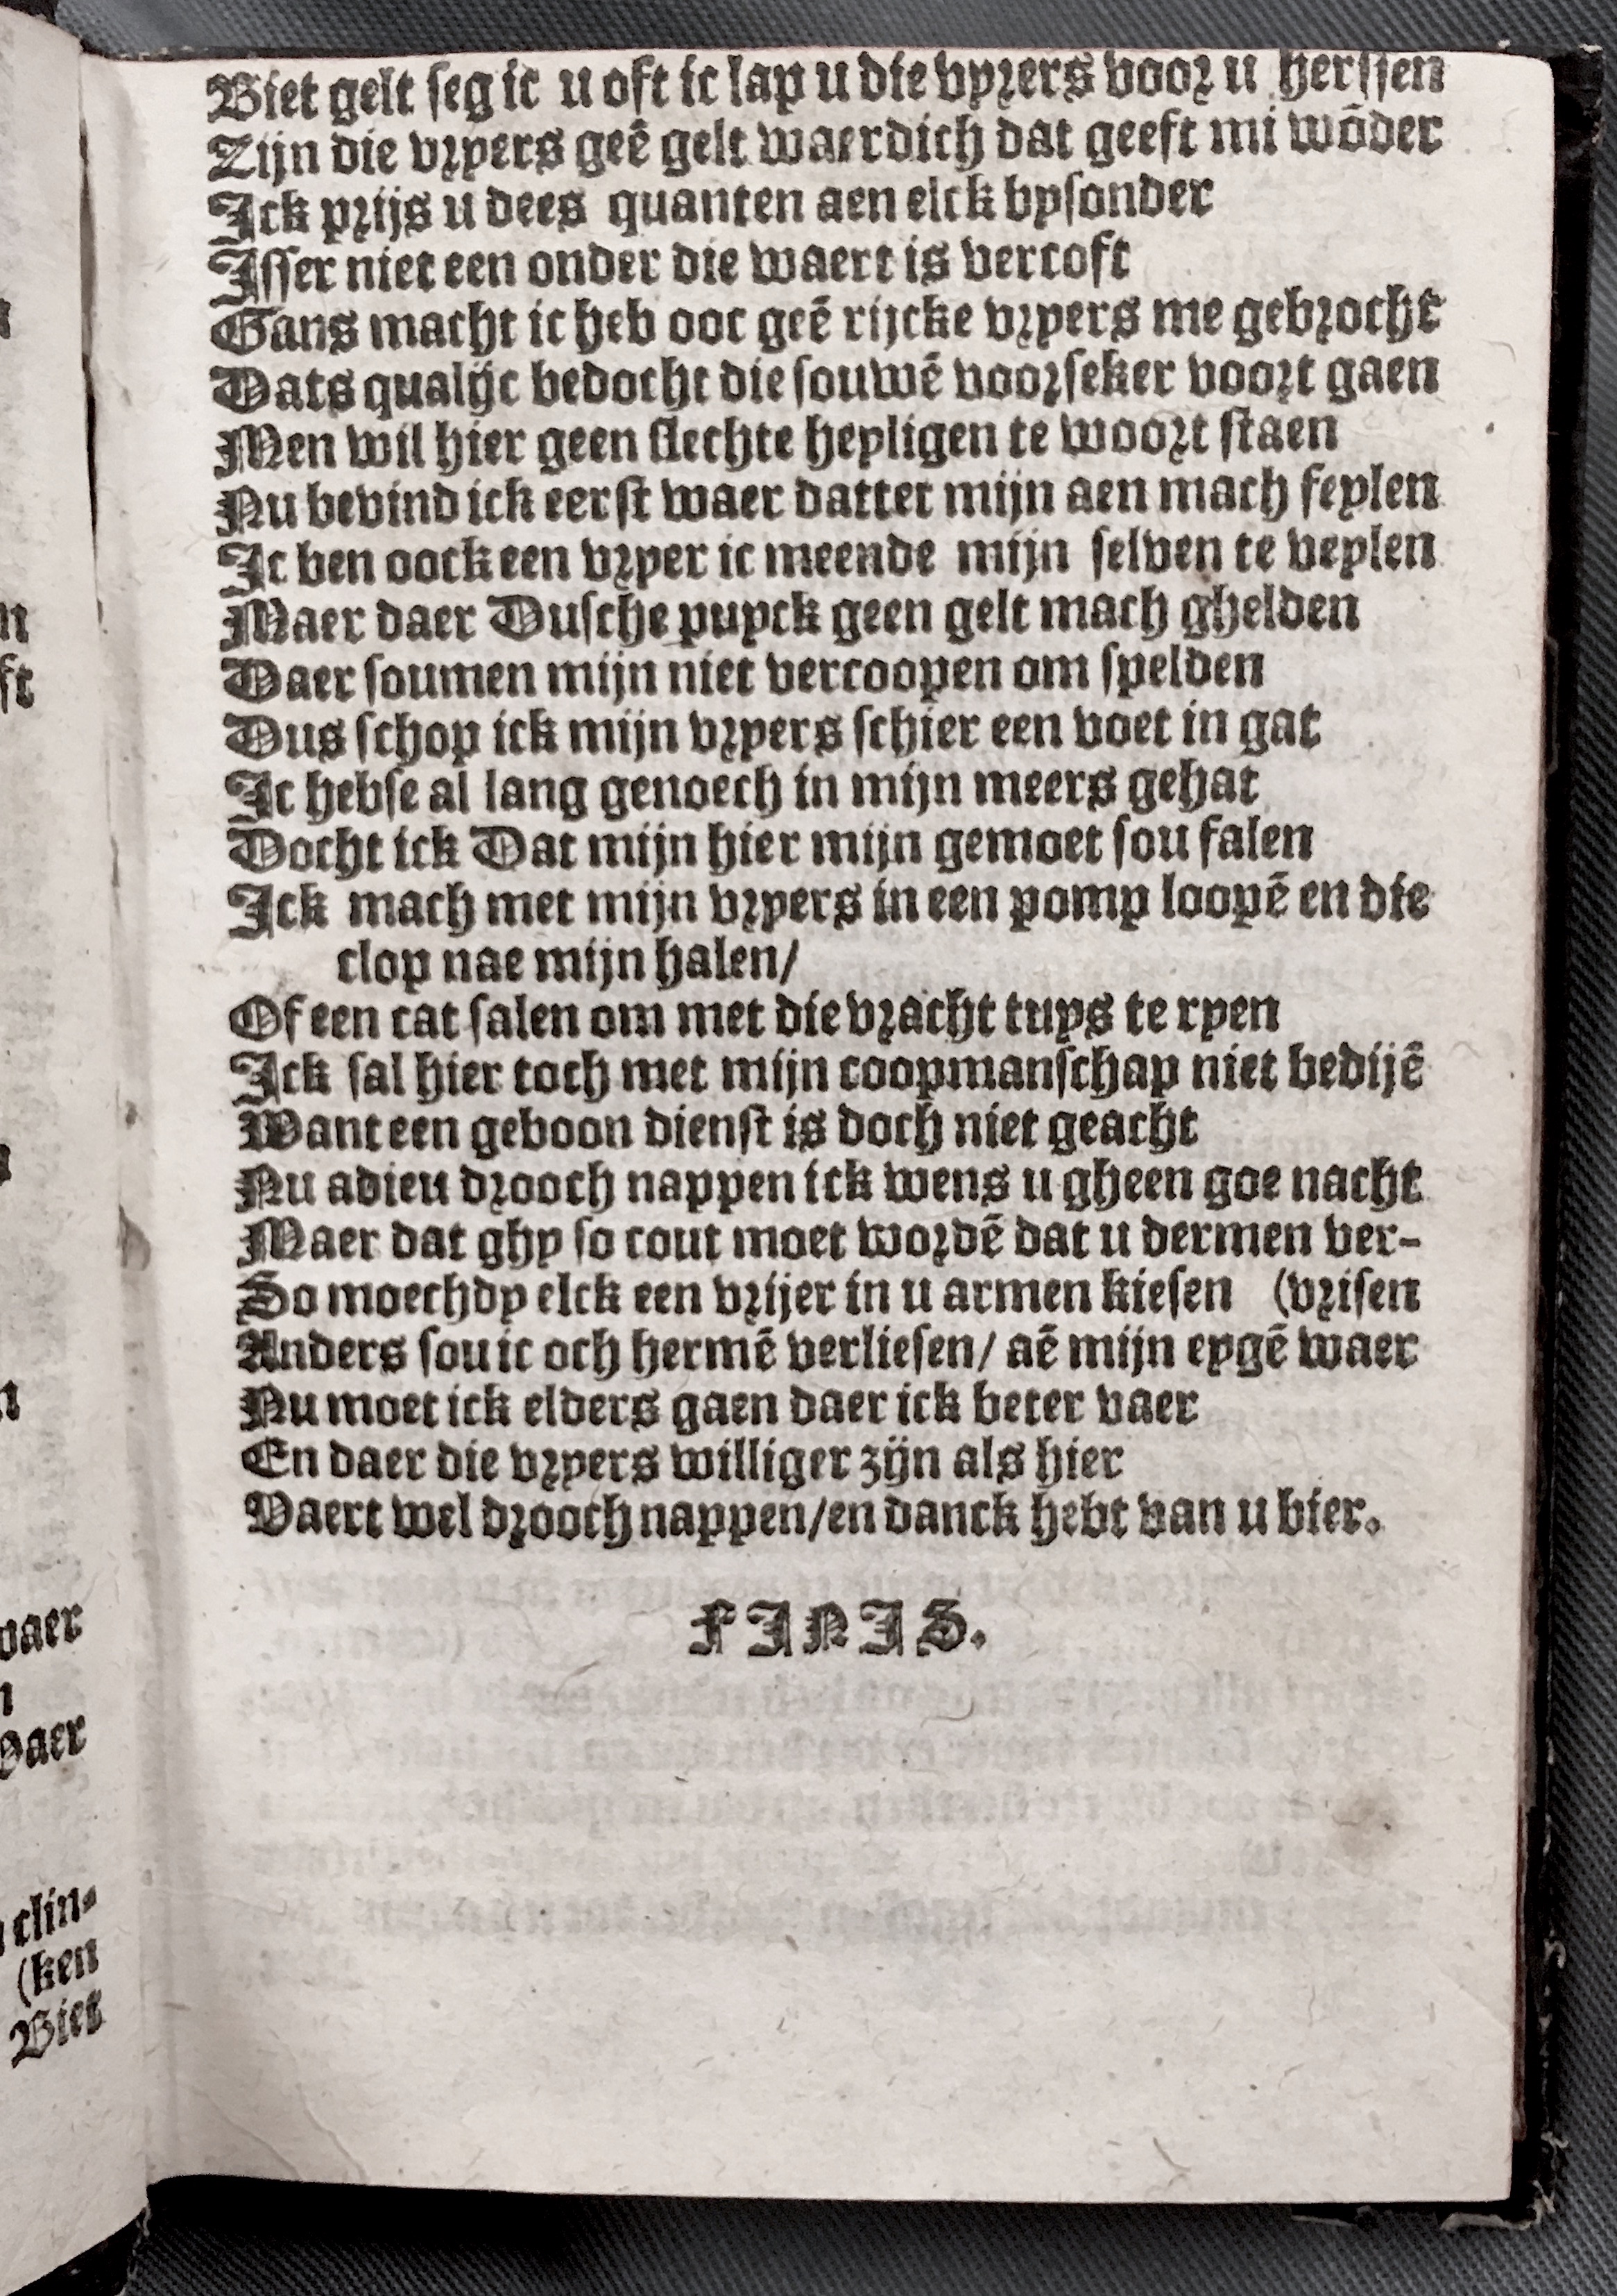 Biet gelt seg ic u oft ic lap u die vpzers voor u herssen
Zijn die vrpers geē gelt waerdich dat geeft mi wōder
Ick prijs u dees quanten aen elck bysonder
Isser niet een onder die waert is vercoft
Gans macht ic heb ooc geē rijcke vrpers me gebrocht
Dats qualijc bedocht die souwē voorseker voort gaen
Men wil hier geen slechte heyligen te woort staen
Nu bevind ick eerst waer dattet mijn aen mach feylen
Ic ben oock een vryer ic meende mijn selven te veylen
Maer daer Dusche puyck geen gelt mach ghelden
Daer soumen mijn niet vercoopen om spelden
Dus schop ick mijn vryers schier een voet in gat
Ic hebse al lang genoech in mijn meers gehat
Docht ick Dat mijn hier mijn gemoet sou falen
Ick mach met mijn vryers in een pomp loopē en die
clop nae mijn halen/
Of een cat salen om met die vracht tuys te ryen
Ick sal hier toch met mijn coopmanschap niet bedijē
Want een geboon dienst is doch niet geacht
Nu adieu drooch nappen ick wens u gheen goe nacht
Maer dat ghy so cout moet wordē dat u dermen ver-
So moechdy elck een vrijer in u armen kiesen (vrisen
Anders sou ic och hermē verliesen/ aē mijn eygē waer
Nu moet ick elders gaen daer ick beter vaer
En daer die vryers williger zijn als hier
Vaert wel drooch nappen/en danck hebt van u bier.
FINIS.
clin-
(ken
Biet